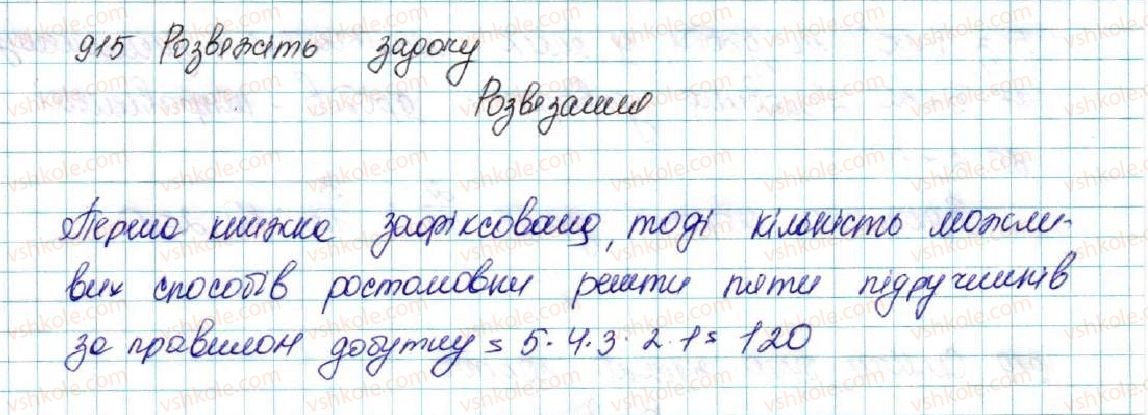 915 Розвяжіть задачу
Розвязання
Перша книжка зафіксована, тоді кількість можли-
вих способів ростановки решти пяти підручників
за правилом добутку = 5·4·3·2·1 = 120